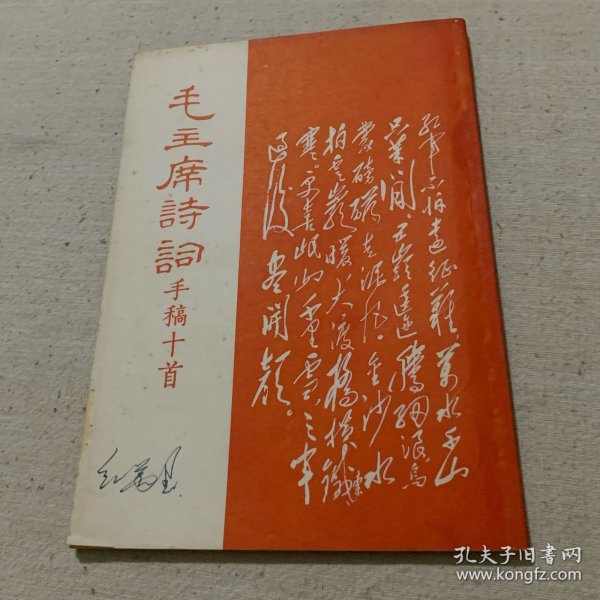 毛主席詩詞
手稿十首
紅軍不怕遠征難 萬水千山
只等閒。五嶺逶迤騰細浪烏
蒙磅礴走泥丸。金沙水
拍雲崖暖，大渡橋橫鐵索
寒。更喜岷山千里雪三軍
過後盡開顏。
孔夫子旧书网
www.kongfz.com